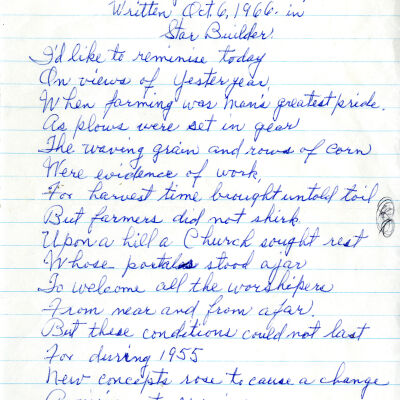 Written Oct. 6, 1966. in
Star Builder
I'd like to reminise today
On views of yesteryear
When farming was man's greatest pride.
As plows were set in gear
The waving grain and rows of corn
Were evidence of work,
For harvest time brought untold toil
But farmers did not shirk.
Upon a hill a Church sought rest
Whose portals stood ajar
To welcome all the worshipers
From near and from afar.
But these conditions could not last
For during 1955
New concepts rose to cause a change